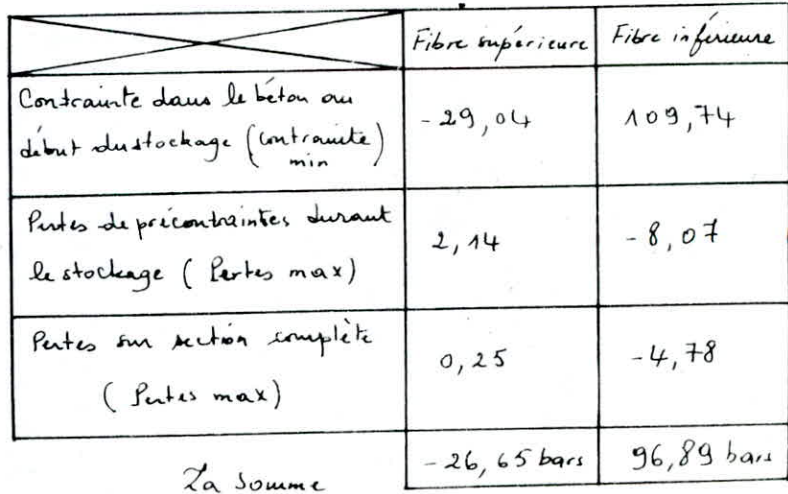 Fibre supérieure Fibre inférieure
Contrainte dans le béton au
début du stockage (contrainte min) -29,04 109,74
Pertes de précontraintes durant
le stockage (Pertes max) 2,14 -8,07
Pertes sur section complète
(Pertes max) 0,25 -4,78
La somme -26,65 bars 96,89 bars